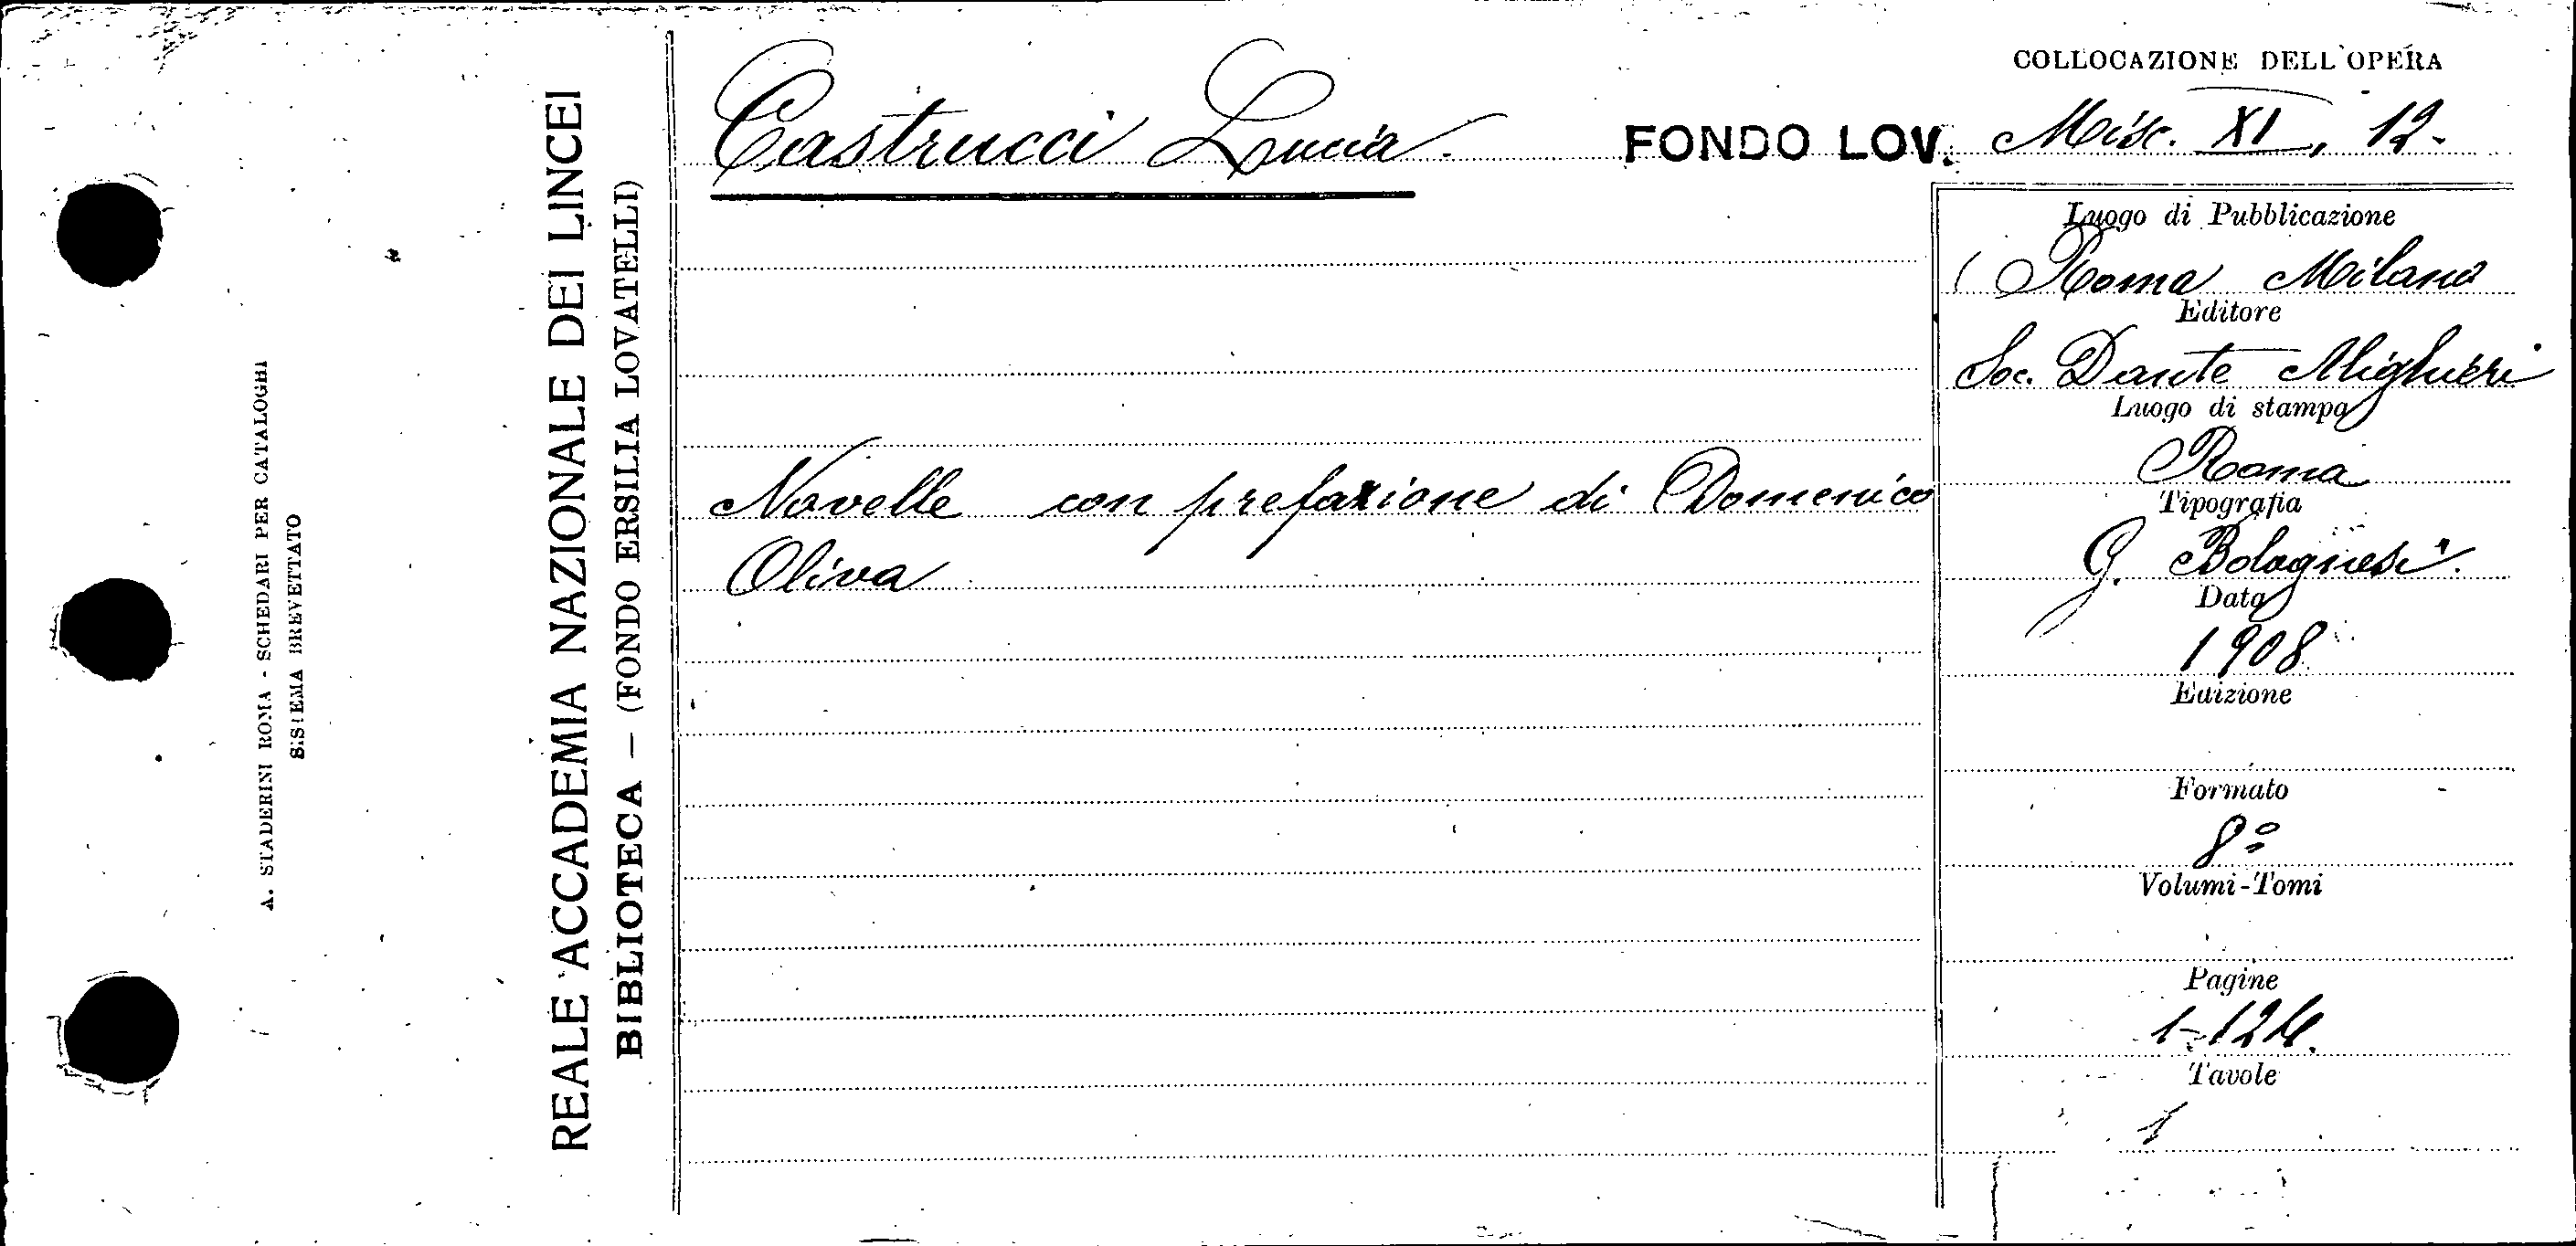 A. STADERINI ROMA - SCHEDARI PER CATALOGHI
SISTEMA BREVETTATO
REALE ACCADEMIA NAZIONALE DEI LINCEI
BIBLIOTECA — (FONDO ERSILIA LOVATELLI)
Castrucci Lucia.
FONDO LOV.
COLLOCAZIONE DELL'OPERA
Misc. XI, 12.
Novelle con prefazione di Domenico
Oliva
Luogo di Pubblicazione
Roma Milano
Editore
Soc. Dante Alighieri
Luogo di stampa
Roma
Tipografia
G. Bolognesi.
Data
1908
Edizione
Formato
8º
Volumi-Tomi
Pagine
1-124.
Tavole
1